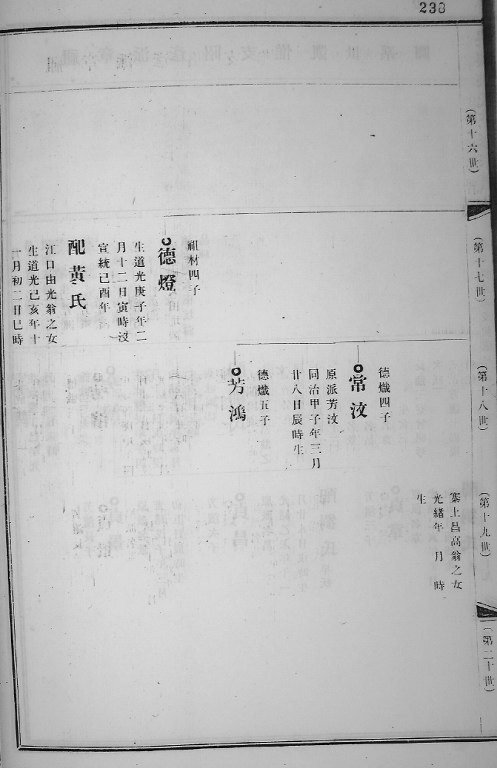 238
(第十六世)
(第十七世)
(第十八世)
(第十九世)
(第二十世)
葉上昌高翁之女
光緒年 月 時
生
德熾四子
常汶
原派芳汶
同治甲子年三月
廿八日辰時生
德熾五子
芳鴻
祖材四子
德燈
生道光庚子年二
月十二日寅時沒
宣統己酉年
配黃氏
江口由光翁之女
生道光己亥年十
一月初二日巳時